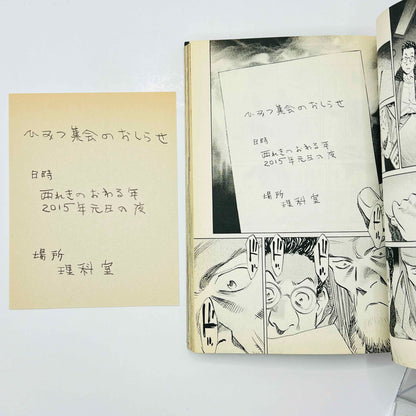 ひみつ集会のおしらせ
日時
西れきのおわる年
2015年元旦の夜
場所
理科室
ひみつ集会のおしらせ
日時
西れきのおわる年
2015年元旦の夜
場所
理科室